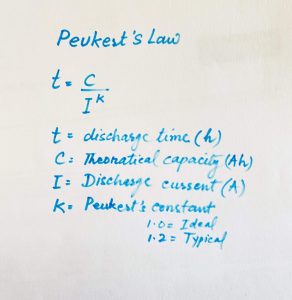 Peukert's Law
t = C
I^k
t = discharge time (h)
C = Theoratical capacity (Ah)
I = Discharge current (A)
K = Peukert's constant
1.0 = Ideal
1.2 = Typical